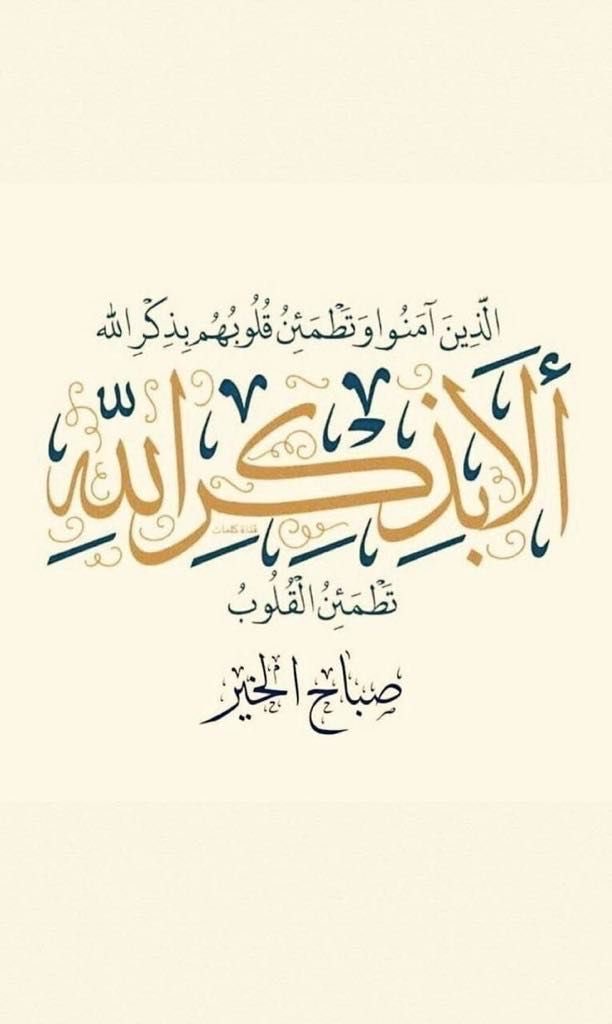 الَّذِينَ آمَنُوا وَتَطْمَئِنُ قُلُوبُهُم بِذِكْرِ الله
ألا بذكر الله
تَطْمَئِنُ الْقُلُوبُ
صباح الخير
قناة كلمات